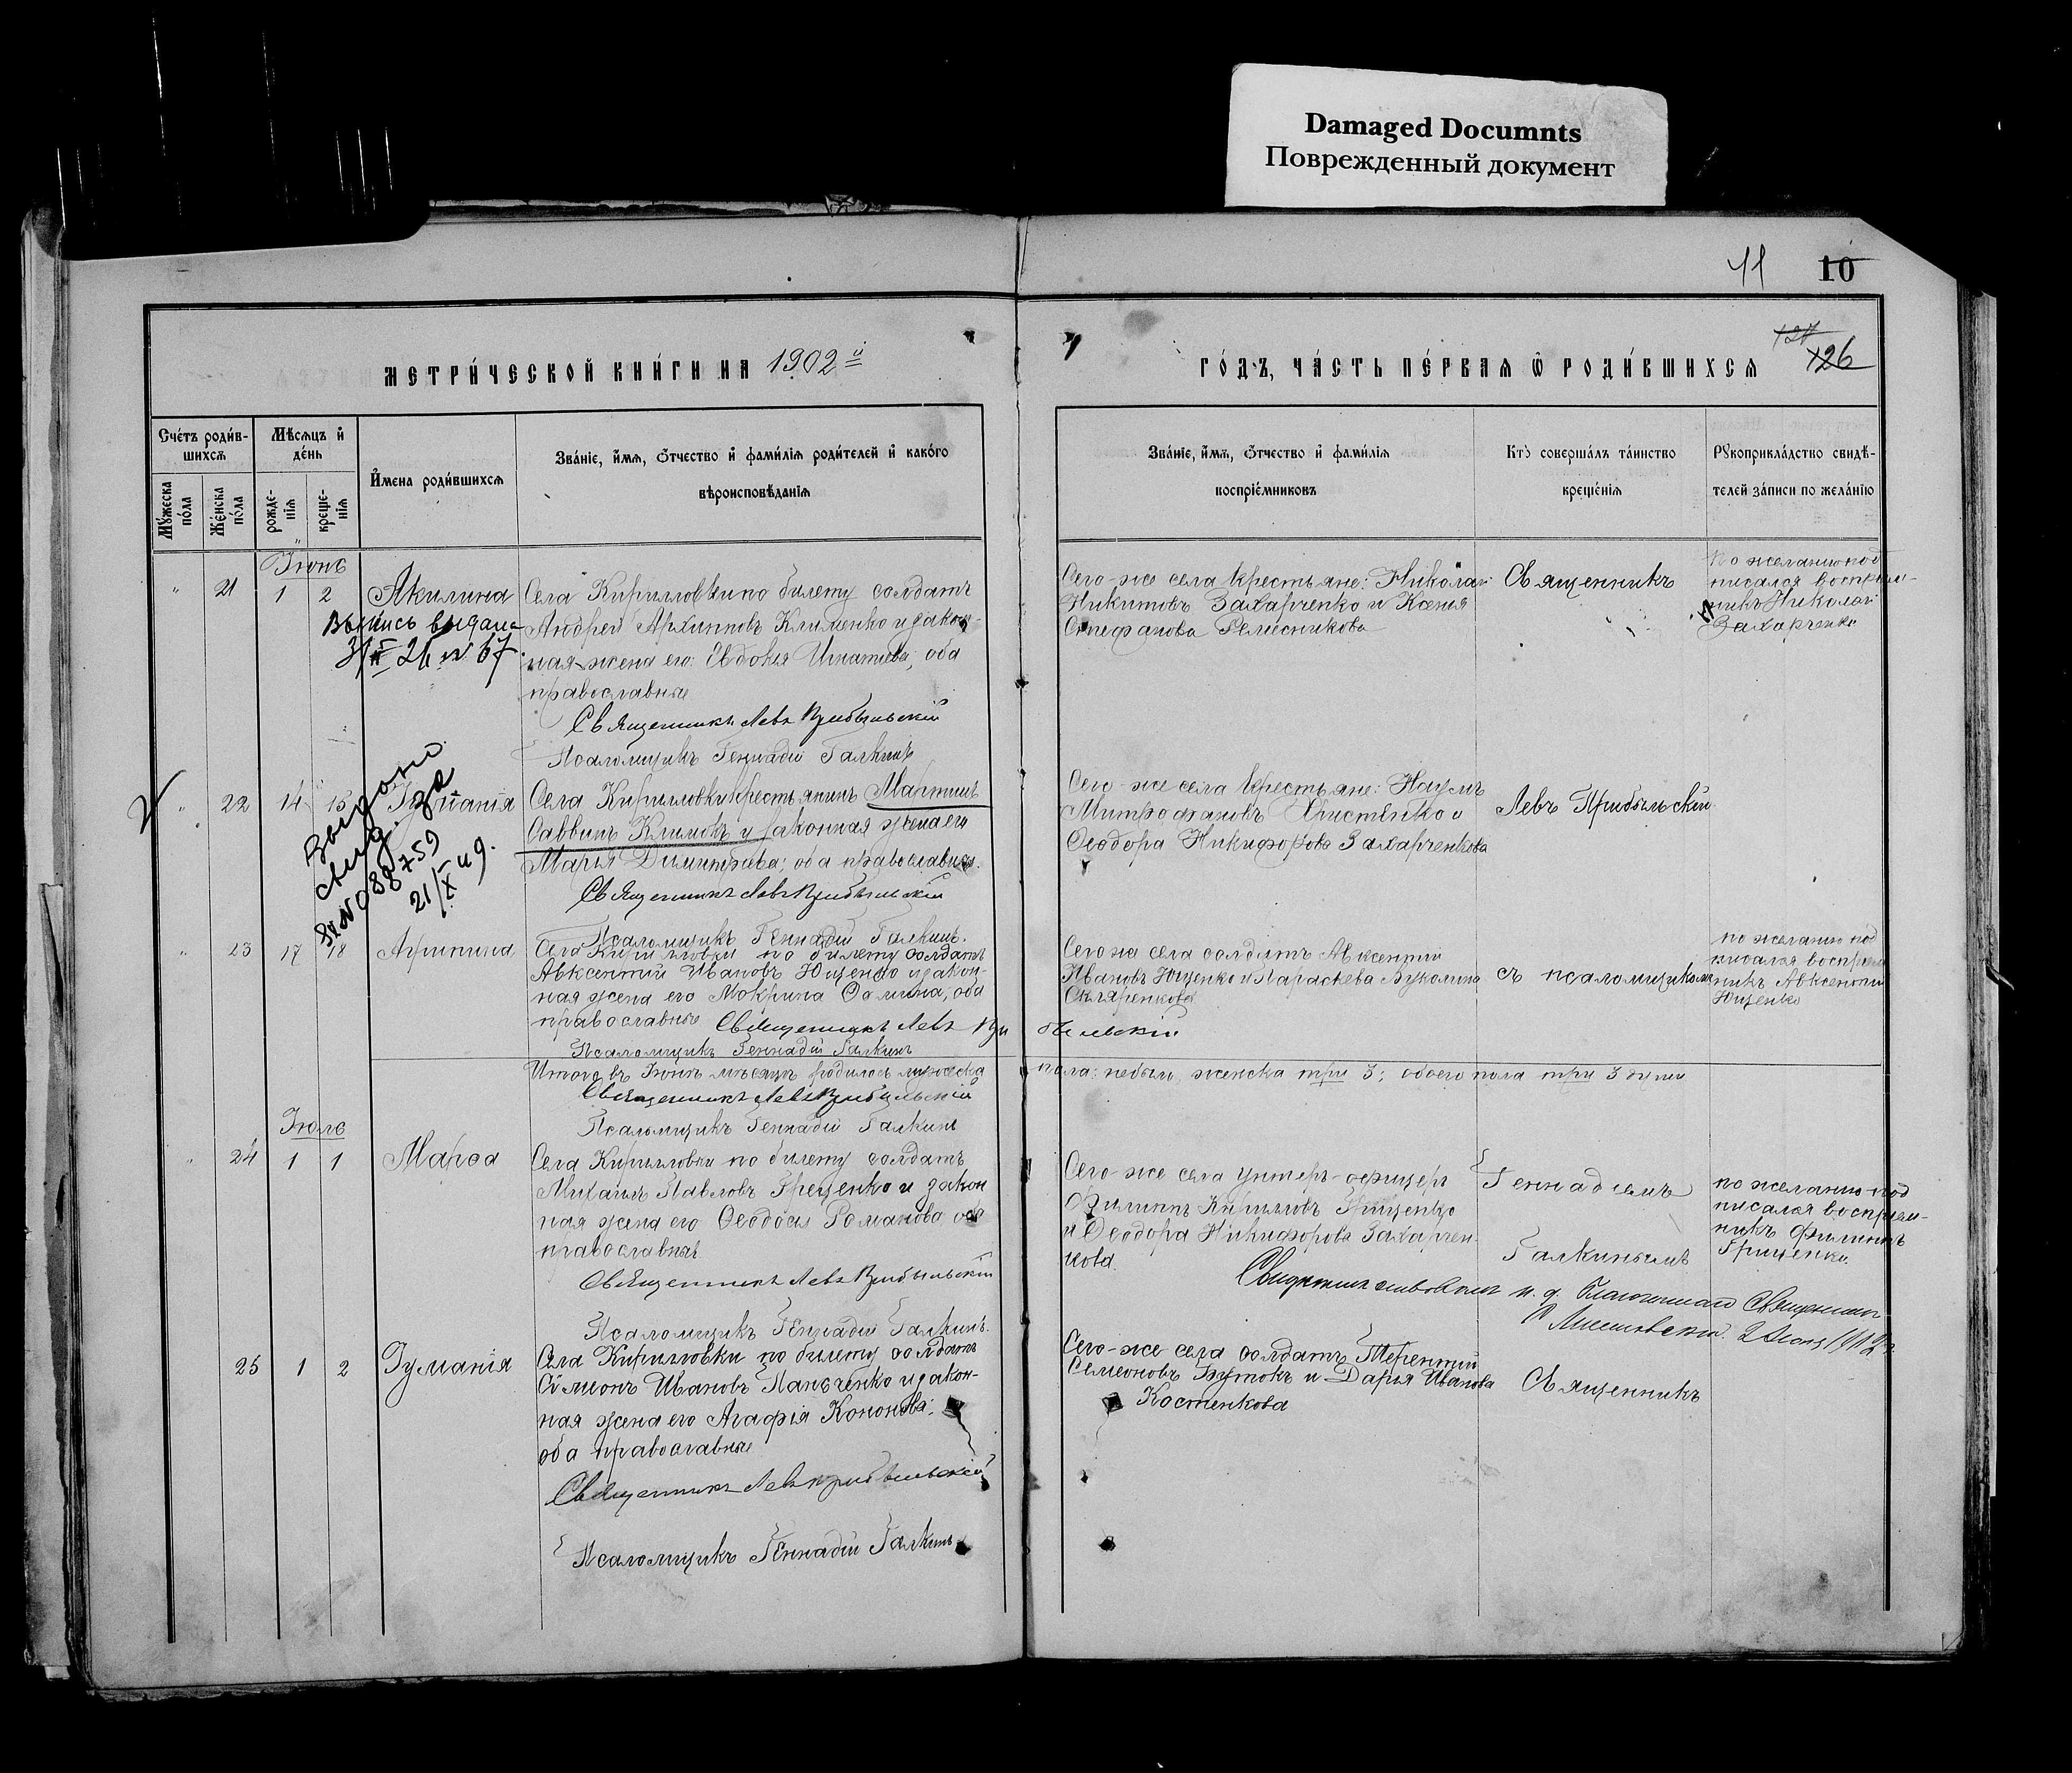 Damaged Documnts
Поврежденный документ
11 10
МЕТРИ́ЧЕСКОЙ КНИ́ГИ НА 1902й
ГО́ДЪ, ЧА́СТЬ ПЕ́РВАЯ Ѿ РОДИ́ВШИХСЯ
126
Сче́тъ роди́в-
шихсѧ
Мѣ́сѧцъ и҆
де́нь
Мꙋ́жеска
по́ла
Же́нска
по́ла
рожде́-
нїѧ
креще́-
нїѧ
И҆мена роди́вшихсѧ
Зва́нїе, и҆́мѧ, ѻ҆́тчество и҆ фами́лїѧ роди́телей и҆ како́го
вѣроисповѣ́данїѧ
Зва́нїе, и҆́мѧ, ѻ҆́тчество и҆ фами́лїѧ
воспрїе́мниковъ
Кто̀ соверша́лъ та́инство
креще́нїѧ
Рꙋкоприкла́дство свидѣ́-
телей за́писи по жела́нїю
Іюнь
21 1 2 Акилина
Выпись выдана
Села Кирилловки по билету солдатъ
Андрей Архиповъ Клименко и закон-
ная жена его Евдокія Игнатіева, оба
православные
Священникъ Левъ Прибыльскій
Псаломщикъ Геннадій Галкинъ
Сего-же села крестьяне: Николай
Никитовъ Захарченко и Ксенія
Стефанова Ремесникова
Священникъ
по желанію под
писался воспріем-
никъ Николай
Захарченко
22 14 15
Выдано
свид. за
21/X 49.
Села Кирилловки крестьянинъ Мартинъ
Саввинъ Климокъ и законная жена его
Марія Димитріева; оба православные.
Священникъ Левъ Прибыльскій
Псаломщикъ Геннадій Галкинъ.
Сего-же села крестьяне: Наумъ
Митрофановъ Христенко и
Ѳеодора Никифорова Захарченкова
Левъ Прибыльскій
23 17 18 Агрипина
Села Кирилловки по билету солдатъ
Авксентій Ивановъ Ющенко и закон-
ная жена его Мокрина Ѳомина, оба
православные Священникъ Левъ При быльскій
Псаломщикъ Геннадій Галкинъ
Сего же села солдатъ Авксентій
Ивановъ Ющенко и Параскева Вуколина
Скляренкова
съ псаломщикомъ
по желанію под
писался воспріем
никъ Авксентій
Ющенко
Итого въ Іюнѣ мѣсяцѣ родилось мужеска пола: небыло, женска три 3; обоего пола три 3 души
Священникъ Левъ Прибыльскій
Псаломщикъ Геннадій Галкинъ
Іюль
24 1 1 Марѳа
Села Кирилловки по билету солдатъ
Михаилъ Павловъ Грещенко и закон
ная жена его Ѳеодосія Романова, оба
православные
Священникъ Левъ Прибыльскій
Псаломщикъ Геннадій Галкинъ.
Сего-же села унтеръ-офицеръ
Филиппъ Кирилловъ Грищенко
и Ѳеодора Никифорова Захарчен-
кова.
Геннадіемъ
Галкинымъ
по желанію под
писался воспріем-
никъ Филиппъ
Грищенко.
25 1 2 Іуліанія
Села Кирилловки по билету солдатъ
Сѵмеонъ Ивановъ Панченко и закон-
ная жена его Агафія Кононова;
оба православные
Священникъ Левъ Прибыльскій
Псаломщикъ Геннадій Галкинъ
Сего-же села солдатъ Терентій
Семеоновъ Бутокъ и Дарья Иванова
Костенкова
Священникъ